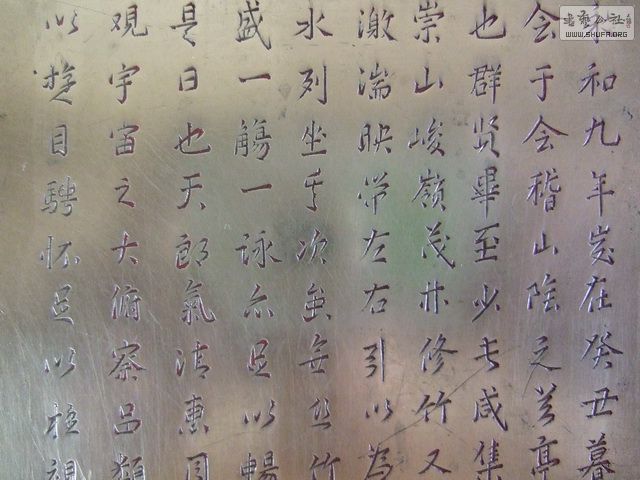 書藝公社
WWW.SHUFA.ORG
和九年岁在癸丑暮
会于会稽山陰之兰亭
也群贤畢至少长咸集
崇山峻嶺茂林修竹又
激湍映带左右引以為
水列坐其次虽無丝竹
盛一觴一詠亦足以暢
是日也天朗氣清惠風
观宇宙之大俯察品類
以遊目騁怀足以極視